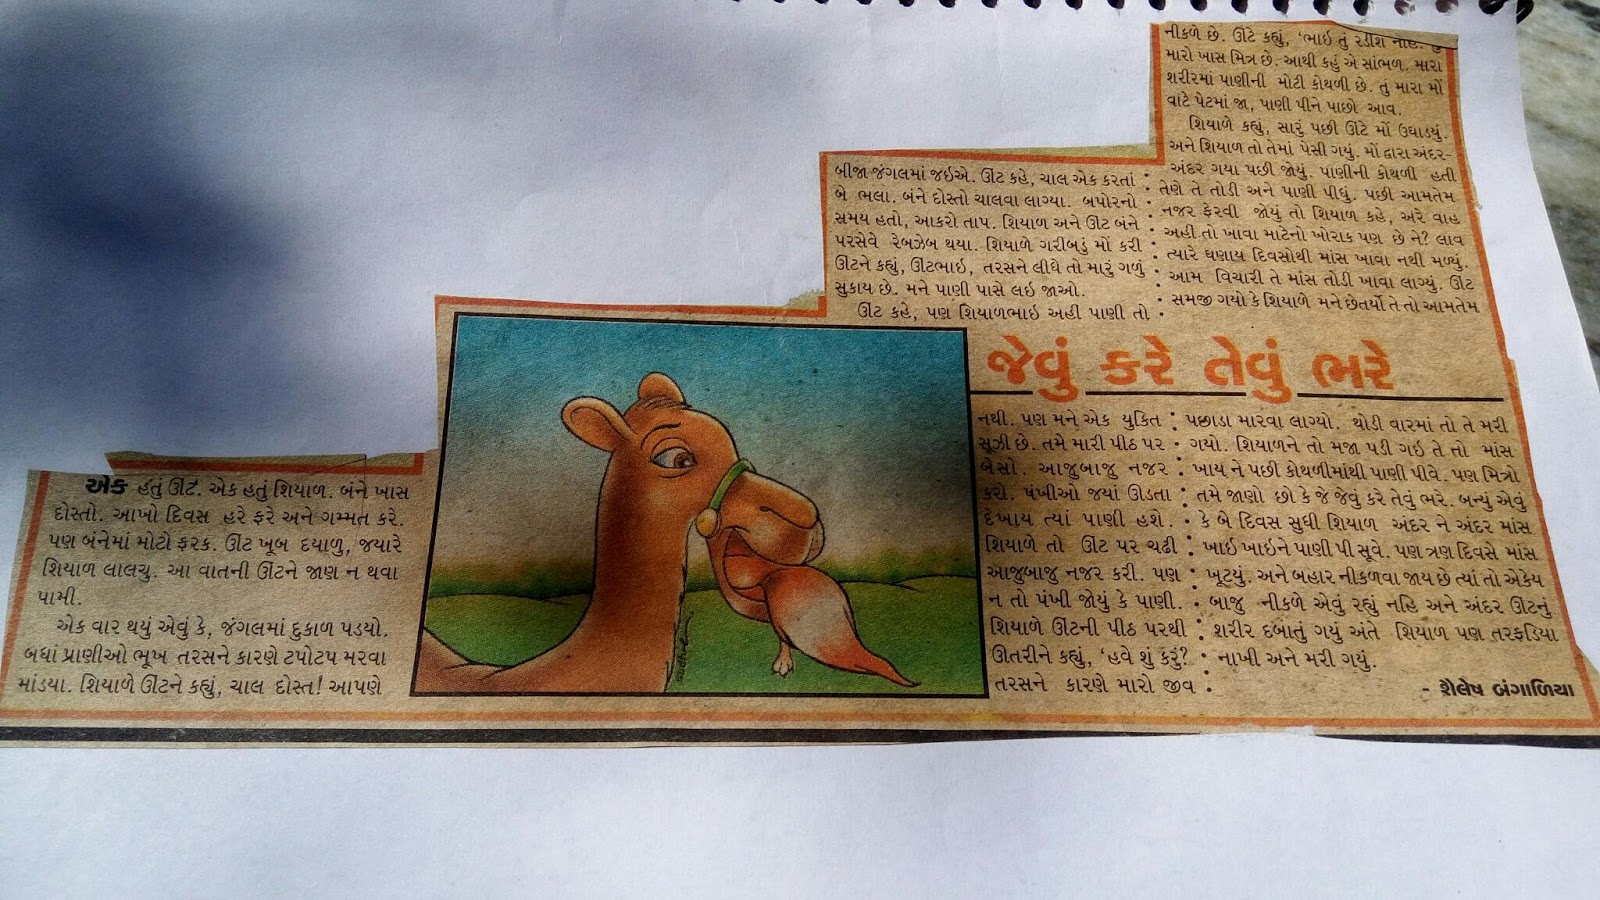 જેવું કરે તેવું ભરે
એક હતું ઊંટ. એક હતું શિયાળ. બંને ખાસ
દોસ્તો. આખો દિવસ હરે ફરે અને ગમ્મત કરે.
પણ બંનેમાં મોટો ફરક. ઊંટ ખૂબ દયાળુ, જયારે
શિયાળ લાલચુ. આ વાતની ઊંટને જાણ ન થવા
પામી.
એક વાર થયું એવું કે, જંગલમાં દુકાળ પડયો.
બધાં પ્રાણીઓ ભૂખ તરસને કારણે ટપોટપ મરવા
માંડયા. શિયાળે ઊંટને કહ્યું, ચાલ દોસ્ત! આપણે
બીજા જંગલમાં જઇએ. ઊંટ કહે, ચાલ એક કરતાં
બે ભલા. બંને દોસ્તો ચાલવા લાગ્યા. બપોરનો
સમય હતો, આકરો તાપ. શિયાળ અને ઊંટ બંને
પરસેવે રેબઝેબ થયા. શિયાળે ગરીબડું મોં કરી
ઊંટને કહ્યું, ઊંટભાઇ, તરસને લીધે તો મારું ગળું
સુકાય છે. મને પાણી પાસે લઇ જાઓ.
ઊંટ કહે, પણ શિયાળભાઇ અહીં પાણી તો
નથી. પણ મને એક યુકિત
સૂઝી છે. તમે મારી પીઠ પર
બેસો. આજુબાજુ નજર
કરો. પંખીઓ જયાં ઊડતા
દેખાય ત્યાં પાણી હશે.
શિયાળે તો ઊંટ પર ચઢી
આજુબાજુ નજર કરી. પણ
ન તો પંખી જોયું કે પાણી.
શિયાળે ઊંટની પીઠ પરથી
ઊતરીને કહ્યું, 'હવે શું કરું?
તરસને કારણે મારો જીવ
નીકળે છે. ઊંટે કહ્યું, 'ભાઇ તું રડીશ નહિ. તું
મારો ખાસ મિત્ર છે. આથી કહું એ સાંભળ. મારા
શરીરમાં પાણીની મોટી કોથળી છે. તું મારા મોં
વાટે પેટમાં જા, પાણી પીને પાછો આવ.
શિયાળે કહ્યું, સારું પછી ઊંટે મોં ઉઘાડયું.
અને શિયાળ તો તેમાં પેસી ગયું. મોં દ્વારા અંદર-
અંદર ગયા પછી જોયું. પાણીની કોથળી હતી
તેણે તે તોડી અને પાણી પીધું. પછી આમતેમ
નજર ફેરવી જોયું તો શિયાળ કહે, અરે વાહ
અહીં તો ખાવા માટેનો ખોરાક પણ છે ને? લાવ
ત્યારે ઘણાય દિવસોથી માંસ ખાવા નથી મળ્યું.
આમ વિચારી તે માંસ તોડી ખાવા લાગ્યું. ઊંટ
સમજી ગયો કે શિયાળે મને છેતર્યો તે તો આમતેમ
પછાડા મારવા લાગ્યો. થોડી વારમાં તો તે મરી
ગયો. શિયાળને તો મજા પડી ગઇ તે તો માંસ
ખાય ને પછી કોથળીમાંથી પાણી પીવે. પણ મિત્રો
તમે જાણો છો કે જે જેવું કરે તેવું ભરે. બન્યું એવું
કે બે દિવસ સુધી શિયાળ અંદર ને અંદર માંસ
ખાઈ ખાઇને પાણી પી સૂવે. પણ ત્રણ દિવસે માંસ
ખૂટયું. અને બહાર નીકળવા જાય છે ત્યાં તો એકેય
બાજુ નીકળે એવું રહ્યું નહિ અને અંદર ઊંટનું
શરીર દબાતું ગયું અંતે શિયાળ પણ તરફડિયા
નાખી અને મરી ગયું.
- શૈલેષ બંગાળિયા